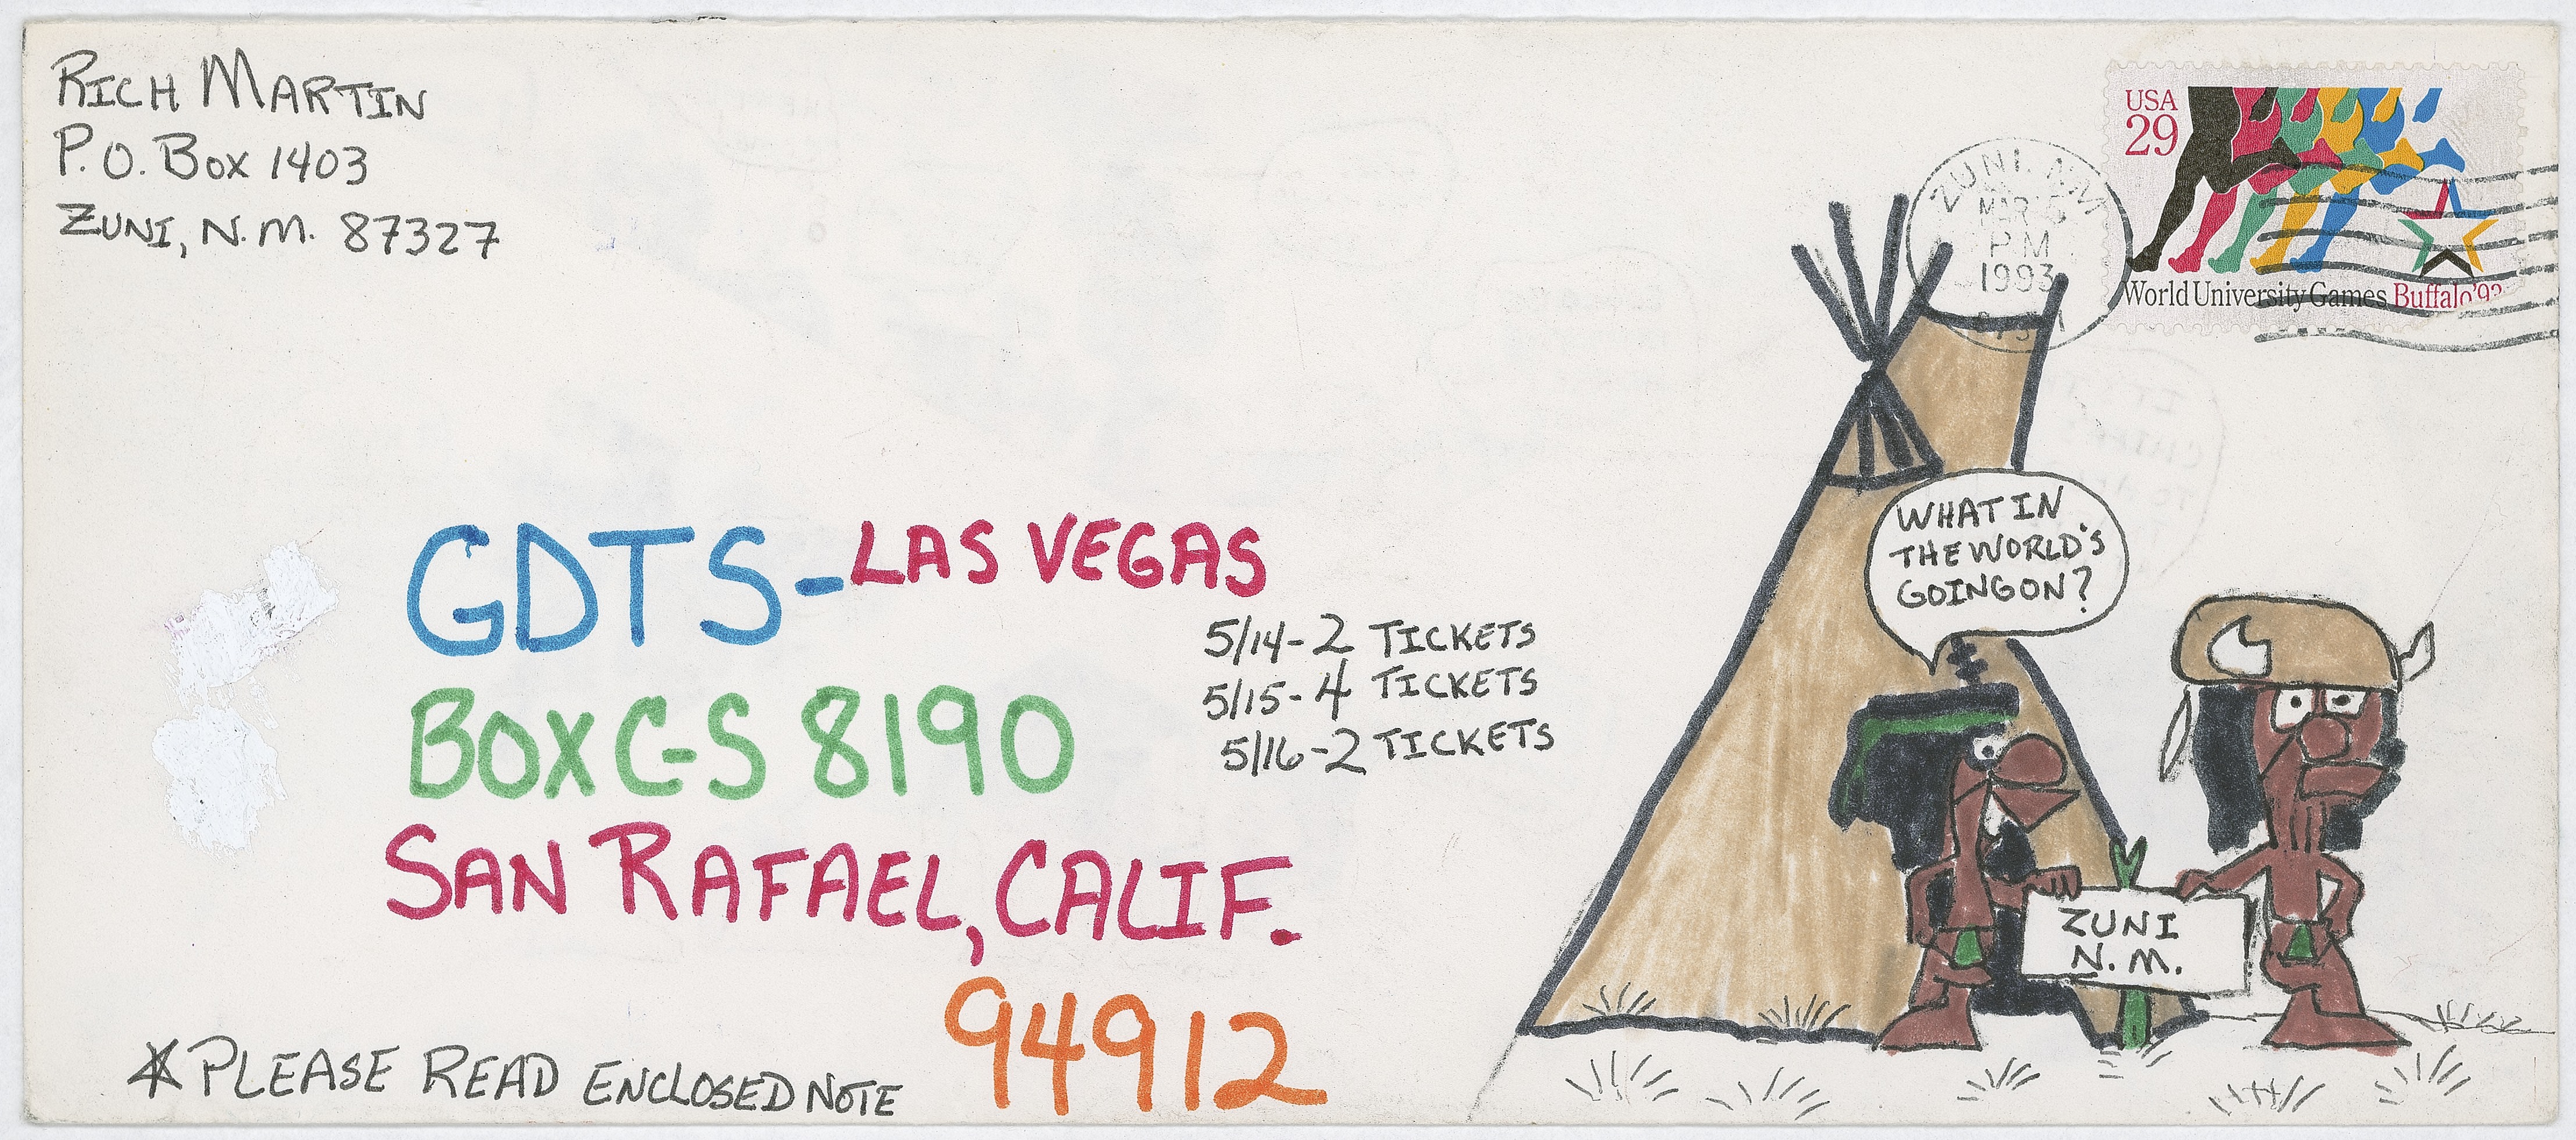 RICH MARTIN
P.O. BOX 1403
ZUNI, N.M. 87327
USA
29
World University Games Buffalo '93
ZUNI. NM
MAR 5
PM
1993
GDTS-LAS VEGAS
5/14-2 TICKETS
5/15-4 TICKETS
5/16-2 TICKETS
BOX C-S 8190
SAN RAFAEL, CALIF.
94912
*PLEASE READ ENCLOSED NOTE
WHAT IN
THE WORLD'S
GOING ON?
ZUNI
N.M.